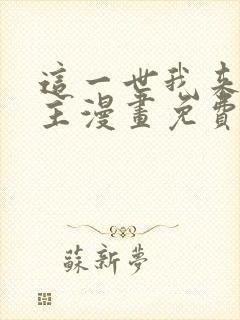 這一世我來
主漫畫免費
蘇新夢